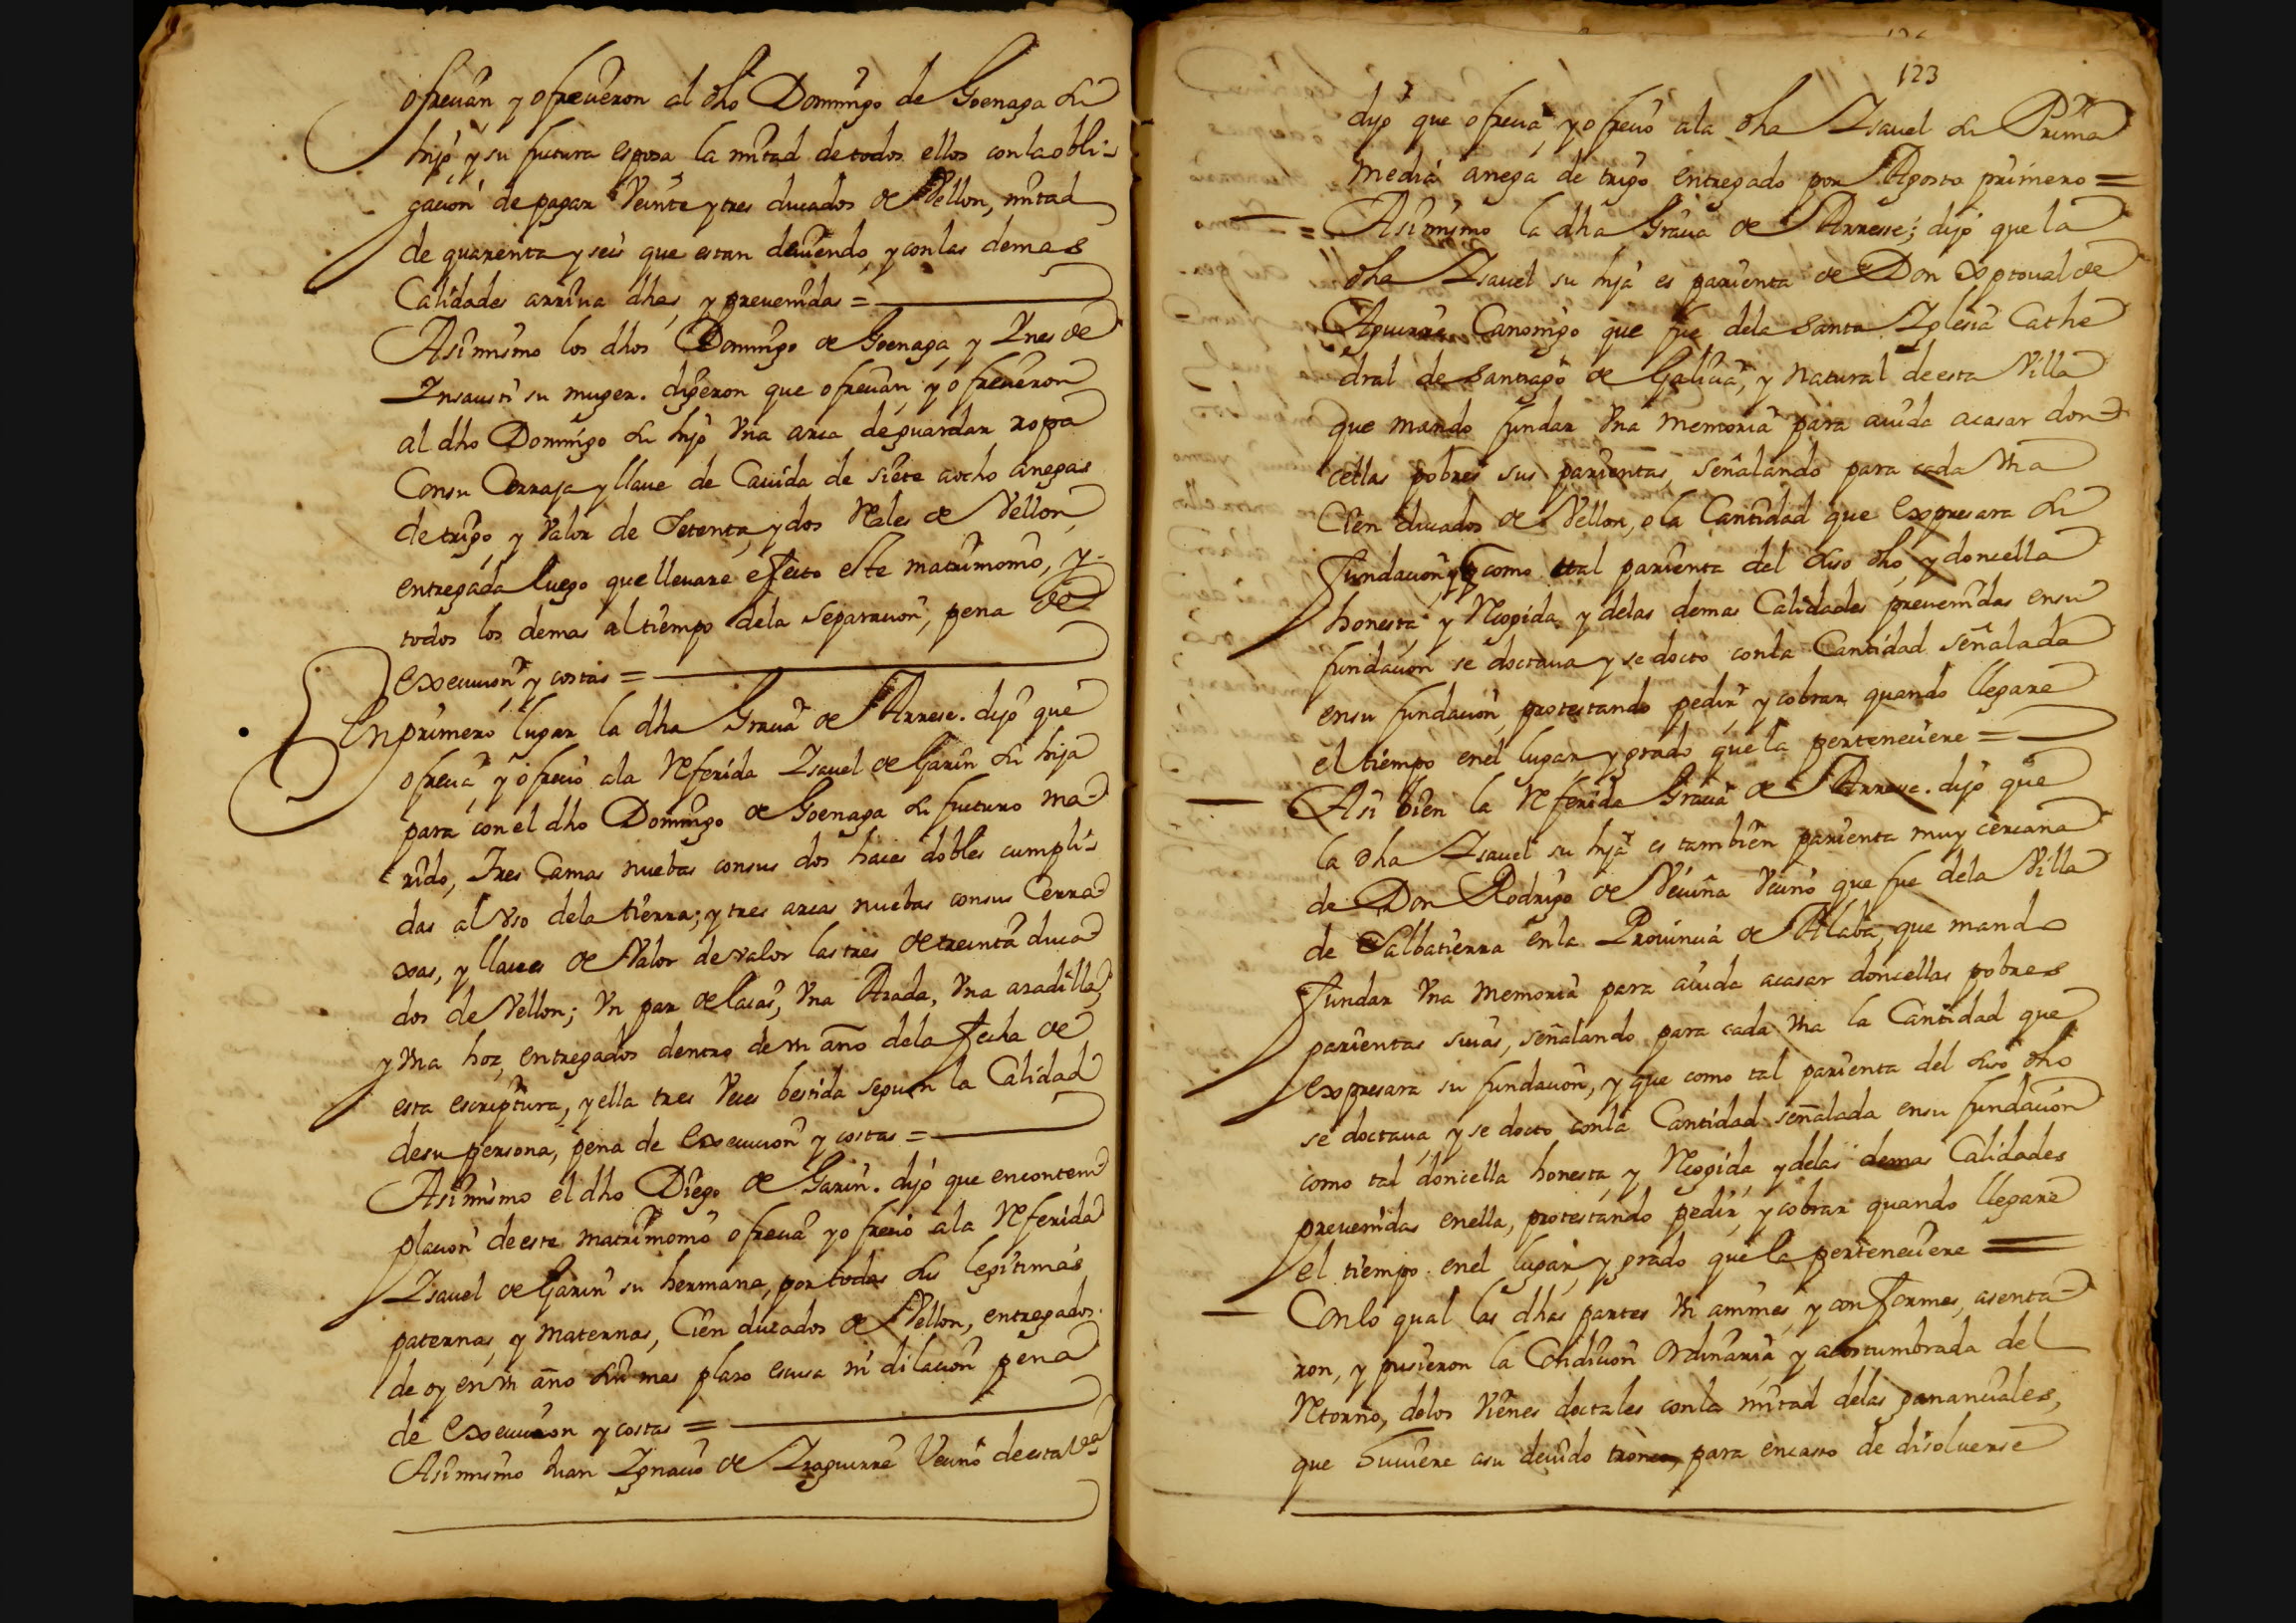 ofrecian y ofrecieron al dho Domingo de Goenaga su
hijo, y su futura esposa la mitad de todos ellos con la obli-
gacion de pagar Veinte y tres ducados de Vellon, mitad
de quarenta y seis que estan deuiendo, y con las demas
Calidades arriua dhas, y preuenidas =
Asimismo los dhos Domingo de Goenaga, y Ynes de
Insausti su muger. digeron que ofrecian, y ofrecieron
al dho Domingo su hijo Vna arca de guardar ropa
Con su Cerraja y llaue de Cauida de siete a ocho anegas
de trigo, y Valor de Setenta y dos Rales de Vellon,
entregada luego que lleuare efecto este matrimonio, y
todos los demas al tiempo dela separacion, pena de
execucion y costas =
En primero lugar la dha Gracia de Arrese. dijo que
ofrecia, y ofrecio ala Referida Isauel de Garin su hija
para con el dho Domingo de Goenaga su futuro ma-
rido, Tres Camas nuebas con sus dos haces dobles cumpli-
das al Vso dela tierra; y tres arcas nuebas con sus Cerra-
xas, y llaues de Valor de valor las tres de treinta duca-
dos de Vellon; Vn par de lacas, Vna Arada, Vna aradilla,
y Vna hoz, entregados dentro de vn año dela fecha de
esta escriptura, y ella tres Veces bestida segun la Calidad
de su persona, pena de execucion y costas =
Asimismo el dho Diego de Garin. dijo que en contem-
placion de este matrimonio ofrecia y ofrecio ala Referida
Isauel de Garin su hermana, por todas sus legitimas
paternas, y maternas, Cien ducados de Vellon, entregados
de oy en vn año sin mas plaso escusa ni dilacion pena
de execucion y costas =
Asimismo Juan Ignacio de Izaguirre Vecino de esta Vª
123
dijo que ofrecia, y ofrecio ala dha Isauel su Prima
media anega de trigo entregado por Agosto primero =
= Asimismo la dha Gracia de Arrese; dijo que la
dha Isauel su hija es parienta de Don Xptoual de
Aguirre Canonigo que fue dela Santa Iglesia Cathe
dral de Santiago de Galicia, y Natural de esta Villa
que mando fundar Vna memoria para auida a casar don-
cellas pobres sus parientas, señalando para cada Vna
Cien ducados de Vellon, o la Cantidad que expresara su
fundacion, y como tal parienta del suso dho, y doncella
honesta y Recogida y delas demas Calidades preuenidas en su
fundacion se doctaua y se docto con la Cantidad señalada
en su fundacion, protestando pedir y cobrar quando llegare
el tiempo en el lugar y grado que la perteneciere =
Asi bien la Referida Gracia de Arrese. dijo que
la dha Isauel su hija es tambien parienta muy cercana
de Don Rodrigo de Vicuña Vecino que fue dela Villa
de Salbatierra en la Prouincia de Alaba, que mando
fundar Vna memoria para aiuda a casar doncellas pobres
parientas suias, señalando para cada Vna la Cantidad que
expresara su fundacion, y que como tal parienta del suso dho
se doctaua, y se docto con la Cantidad señalada en su fundacion
como tal doncella honesta, y Recogida, y delas demas Calidades
preuenidas en ella, protestando pedir, y cobrar quando llegare
el tiempo en el lugar, y grado que la perteneciere =
Con lo qual las dhas partes Vnanimes, y conformes, asenta-
ron, y pusieron la Condicion Ordinaria, y acostumbrada del
Retorno, delos Vienes doctales con la mitad delas gananciales,
que huuiere a su deuido tronco, para en caso de disoluerse